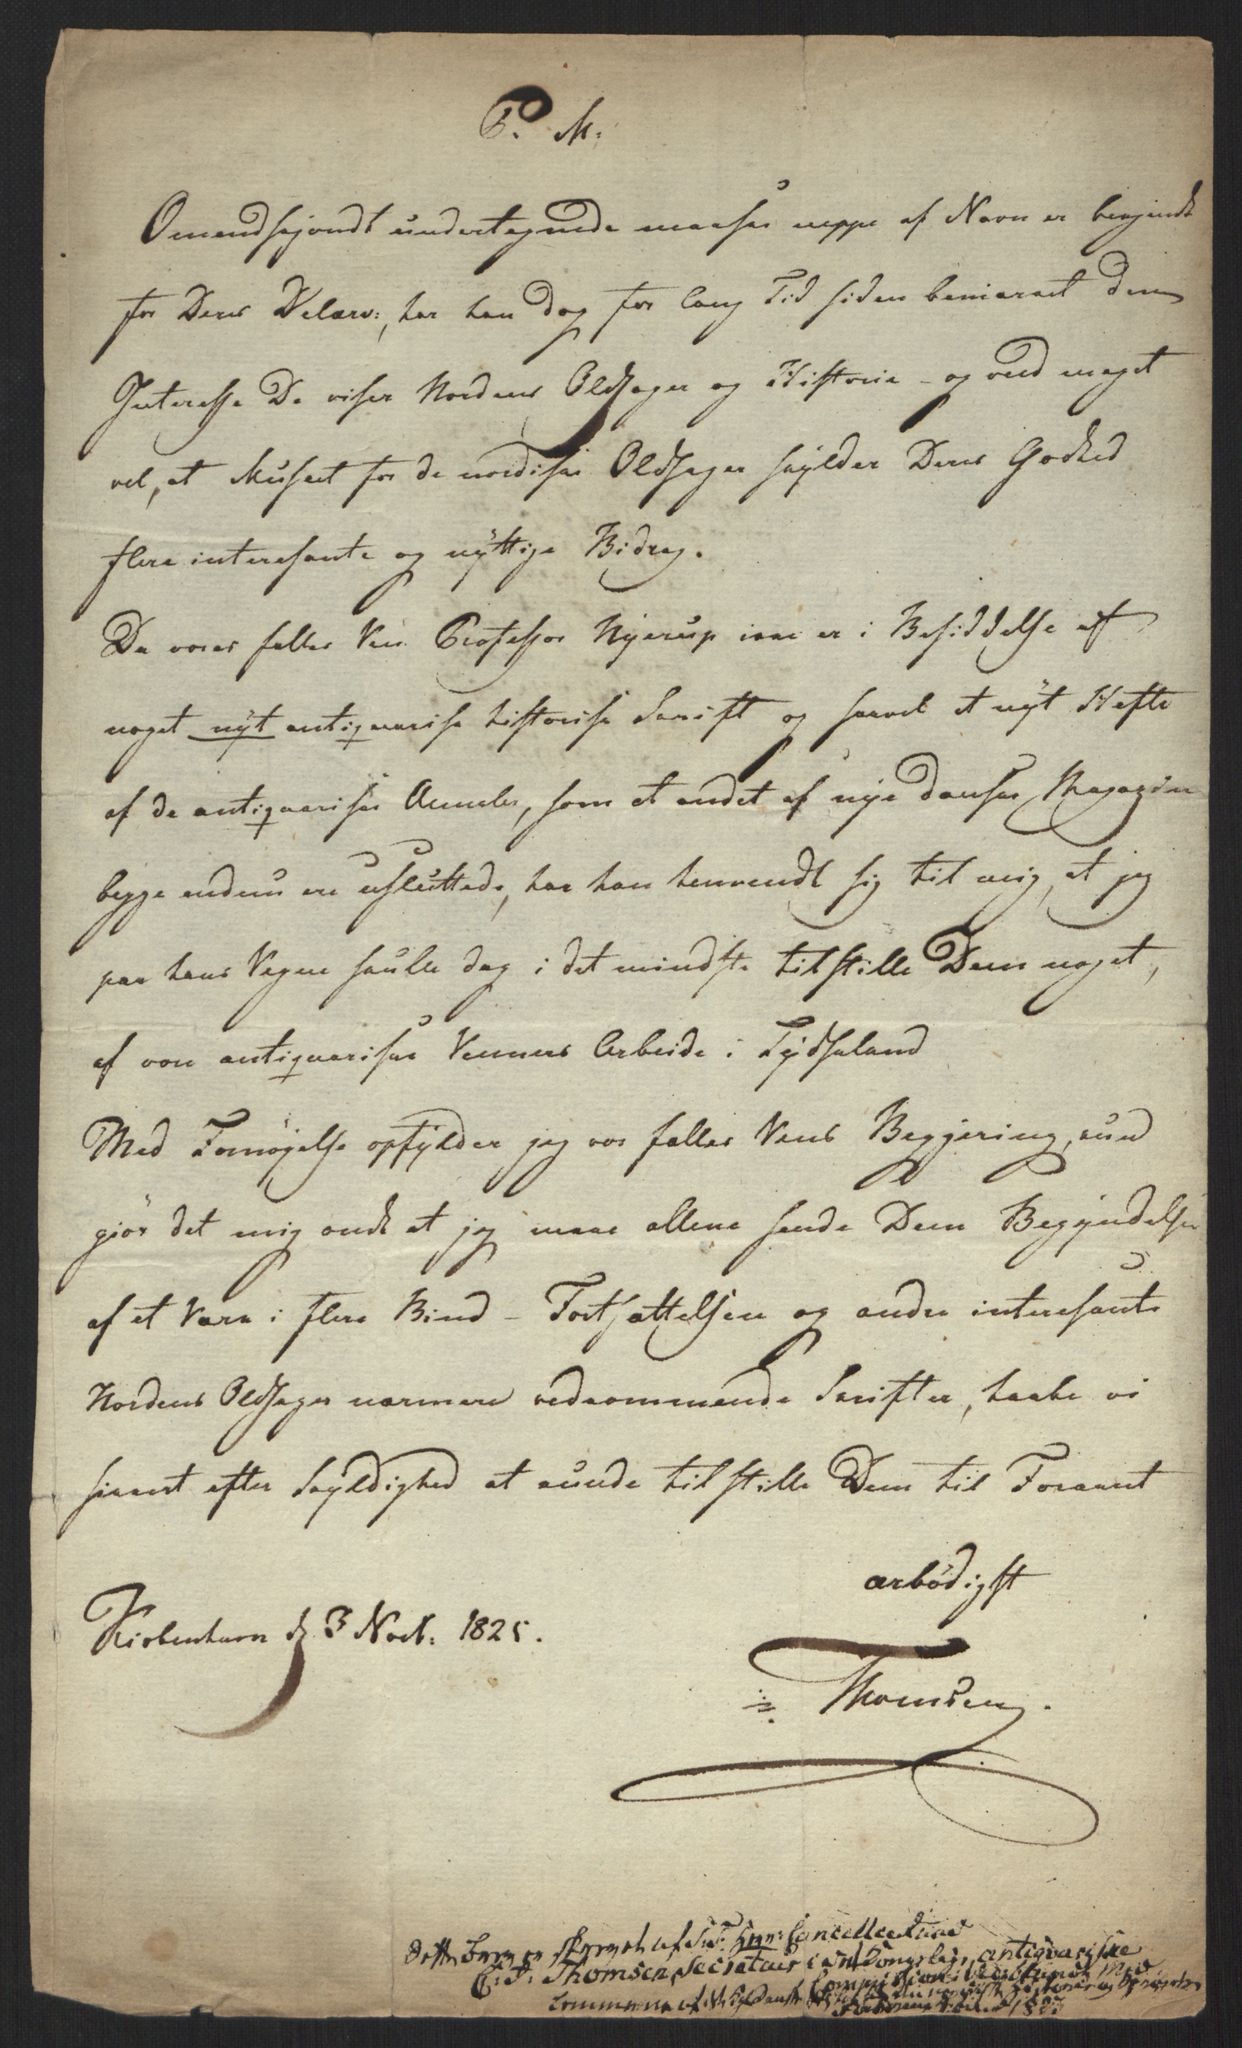 P. M.
Omendskjöndt undertegnede maaskee neppe af Navn er bekjendt
for Deres Velærv:, har han dog for lang Tid siden bemærket den
Interesse De viser Nordens Oldsager og Historie - og veed meget
vel, at Museet for de nordiske Oldsager skylder Deres Godhed
flere interessante og nyttige Bidrag.
Da vores fælles Ven Professor Nyerup ikke er i Besiddelse af
noget nyt antiqvarisk historisk Skrift og saavel et nyt Hefte
af de antiqvariske Annaler, som et andet af nye danske Magazin
begge endnu ere usluttede, har han henvendt sig til mig, at jeg
paa hans Vegne skulle dog i det mindste tilstille Dem noget,
af vore antiqvariske Venners Arbeide i Tydskland
Med Fornöyelse opfylder jeg vor fælles Vens Begjæring, kun
gjör det mig ondt at jeg maae allene sende Dem Begyndelsen
af et Værk i flere Bind - Fortsættelsen og andre interesante
Nordens Oldsager nærmere vedkommende Skrifter, haabe vi
snart efter Skyldighed at kunde tilstille Dem til Foraaret
ærbödigst
Kiöbenhavn d 3 Novb: 1825.
Thomsen.
Dette Brev er skrevet af Hr: Cancelleeraad
C: J: Thomsen, Secretair i den Kongelige antiqvariske
Commission i Kiöbenhavn, Med